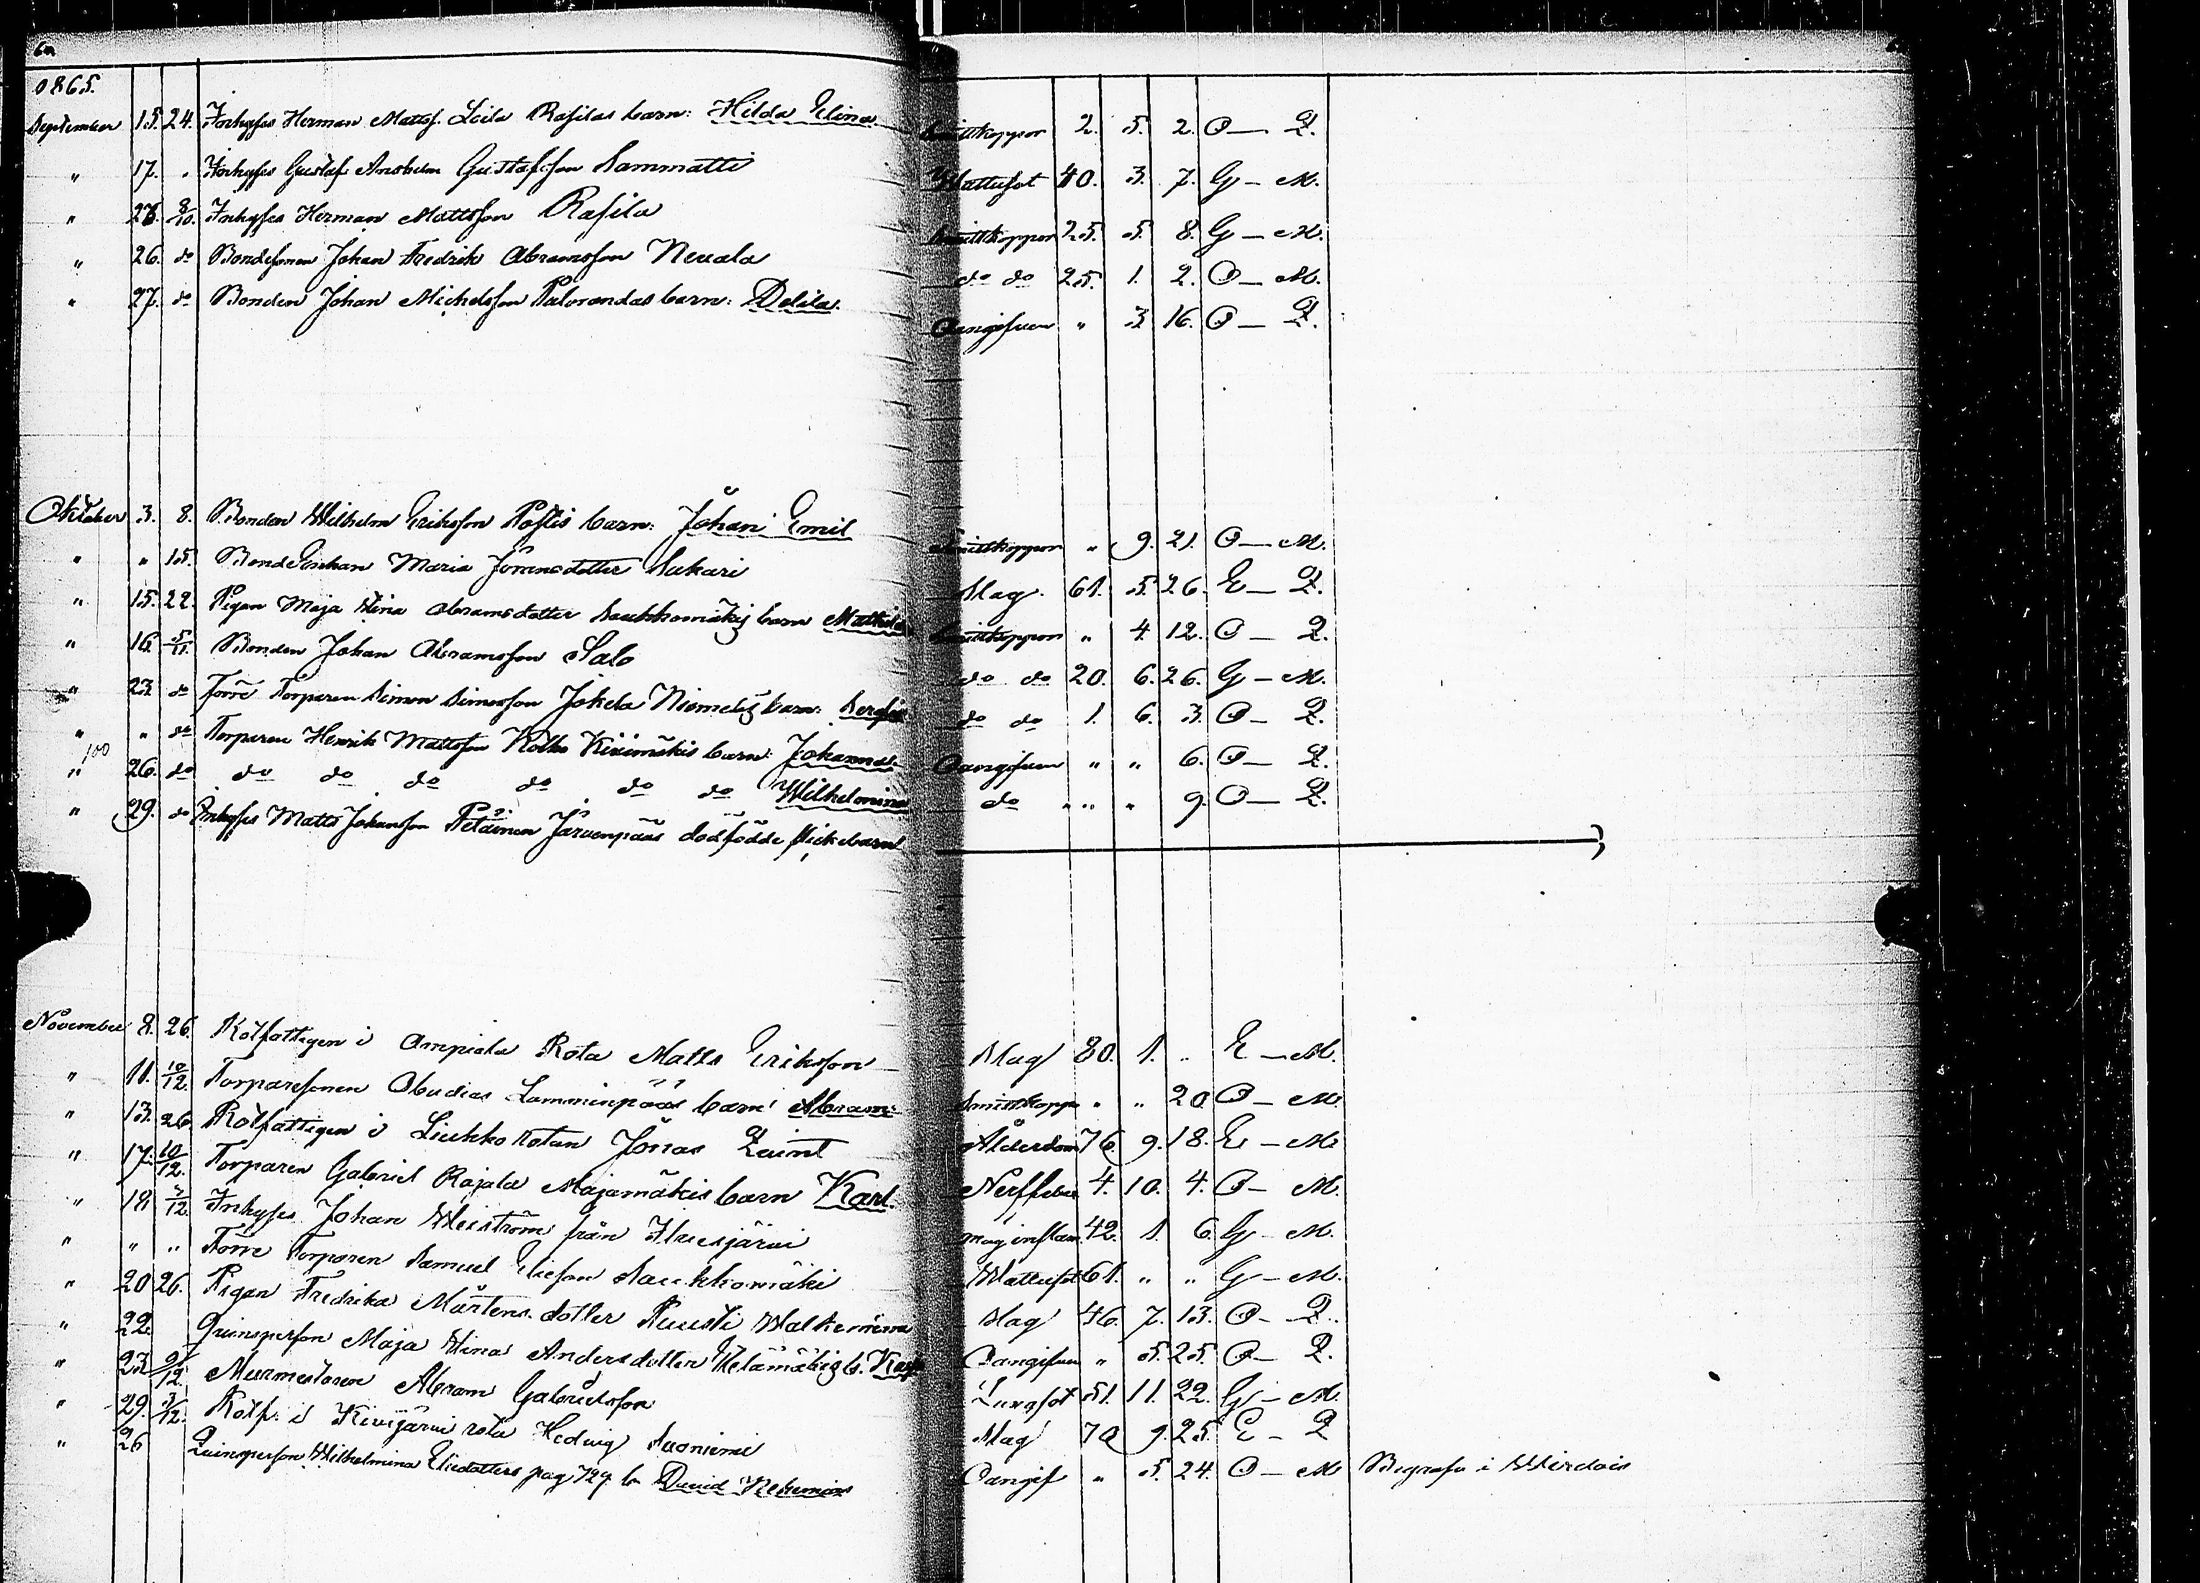 1865.
September 15. 24. Inhyses Herman Mattss. Leila Rasilas barn: Hilda Elina. Smittkoppor 2. 5. 2. O — Q.
" 17. " Inhyses Gustaf Anshelm Gustafsson Sammatti Wattusot 40. 3. 7. G — M.
" 8/10. Inhyses Herman Mattsson Rasila Smittkoppor 25. 5. 8. G — M.
" 26. do Bondesonen Johan Fredrik Abramsson Neuala do do 25. 1. 2. O — M.
" 27. do Bonden Johan Michelsson Palorandas barn: Delila. Oangifven " 3 16. O — Q.
Oktober 3. 8. Bonden Wilhelm Eriksson Postis barn: Johan Emil Smittkoppor " 9. 21. O — M.
" " 15. Bondeenkan Maria Jöransdotter Sakari Slag 61. 5. 26. E — Q.
" 15. 22. Pigan Maja Stina Abramsdotter Saukkomäkis barn Mathilda Smittkoppor " 4. 12. O — Q.
" 16. 5/11. Bonden Johan Abramsson Salo do do 20. 6. 26. G — M.
" 23. do Torparen Simon Simonsson Jokela Niemeläs barn: do do 1. 6. 3. O — Q.
" " do Torparen Henrik Mattsson Kolho Kivimäkis barn: Johanna. Oangifven " " 6. O — Q.
100
" 26. do do do do do do do Wilhelmina do " " 9. O — Q.
" 29. do Inhyses Matts Johansson Petäinen Järvenpääs dödfödde flickebarn
November 8. 26. Rotfattigen i Ampiala Rota Matts Eriksson Slag 80. 1. " E — M.
" 11. 10/12. Torparesonen Abudias Lamminpääs barn: Abram. Smittkoppor " " 20 O — M.
" 13. 26. Rotfattigen i Liukko rotan Jonas Quint Ålderdom 76. 9. 18. E — M.
" 17. 10/12. Torparen Gabriel Rajala Majamäkis barn Karl. Nerffeber 4. 10. 4. O — M.
" 18. 3/12 Inhyses Johan Weiström från Ilvesjärvi mag inflam. 42. 1. 6. G — M.
" " " Torparen Samuel Eliesson Saukkomäki Wattusot 61. " " G — M.
" 20 26. Pigan Fredrika Mårtensdotter Ruusti Walkeniemi Slag 46. 7. 13. O — Q.
" 22. Quinsperson Maja Stina Andersdotter b. Oangifven " 5. 25. O — Q.
" 23. Murmestaren Abram Gabrielsson Lungsot 51. 11. 22. G — M.
" 29. 3/12. Rotf. i Kivijärvi rota Hedvig Suoniemi Slag 70 9. 25. E — Q
" 26 Quinsperson Wilhelmina Eliedotters pag 729. b. David Nehemias Oangif " 5. 24. O — M Begrafven i Wirdois